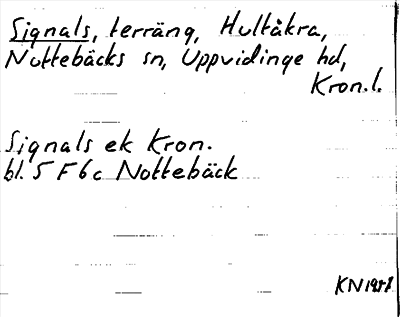 Signals, terräng, Hultåkra,
Nottebäcks sn, Uppvidinge hd,
Kron.l.
Signals ek Kron.
bl. 5 F 6 c Nottebäck